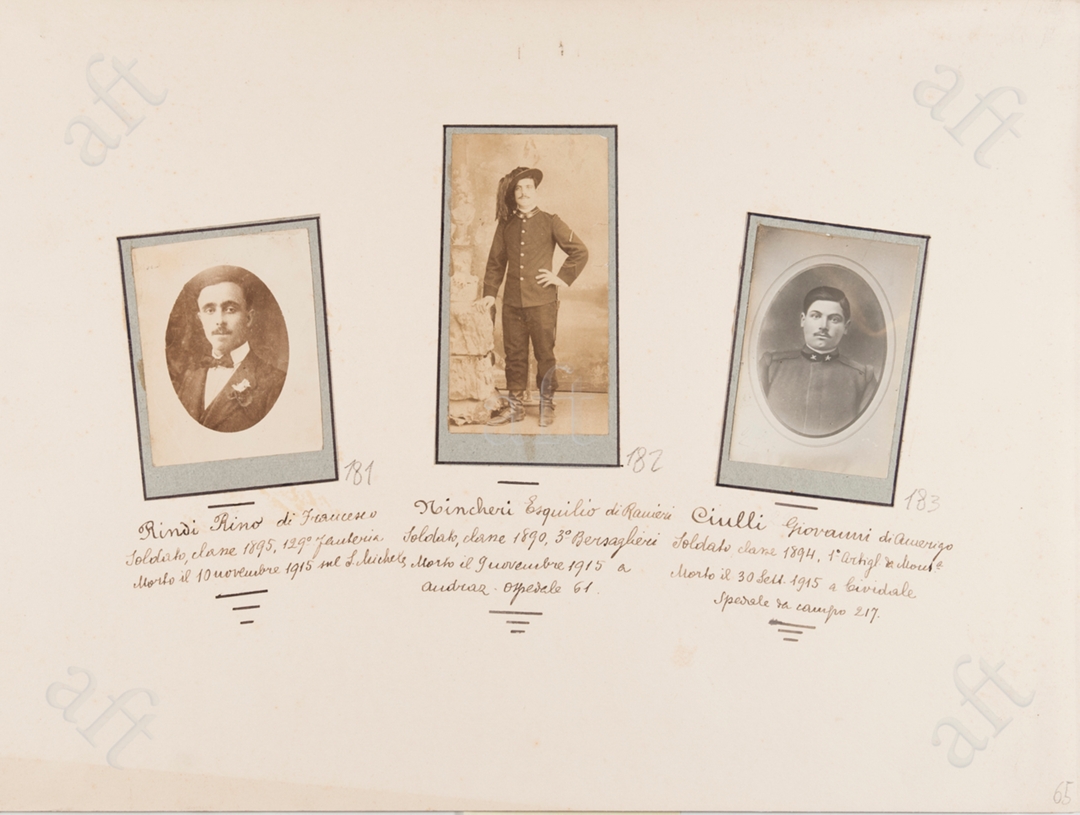 aft
aft
181
182
183
Rindi Rino di Francesco
Soldato, classe 1895, 129º Fanteria
Morto il 10 novembre 1915 sul S. Michele
Nincheri Esquilio di Ranieri
Soldato, classe 1890, 3º Bersaglieri
Morto il 9 novembre 1915 a
Andraz - Ospedale 61.
Ciulli Giovanni di Amerigo
Soldato classe 1894, 1º Artigl. da Mont.
Morto il 30 Sett. 1915 a Cividale
Spedale da campo 217.
aft
aft
aft
65